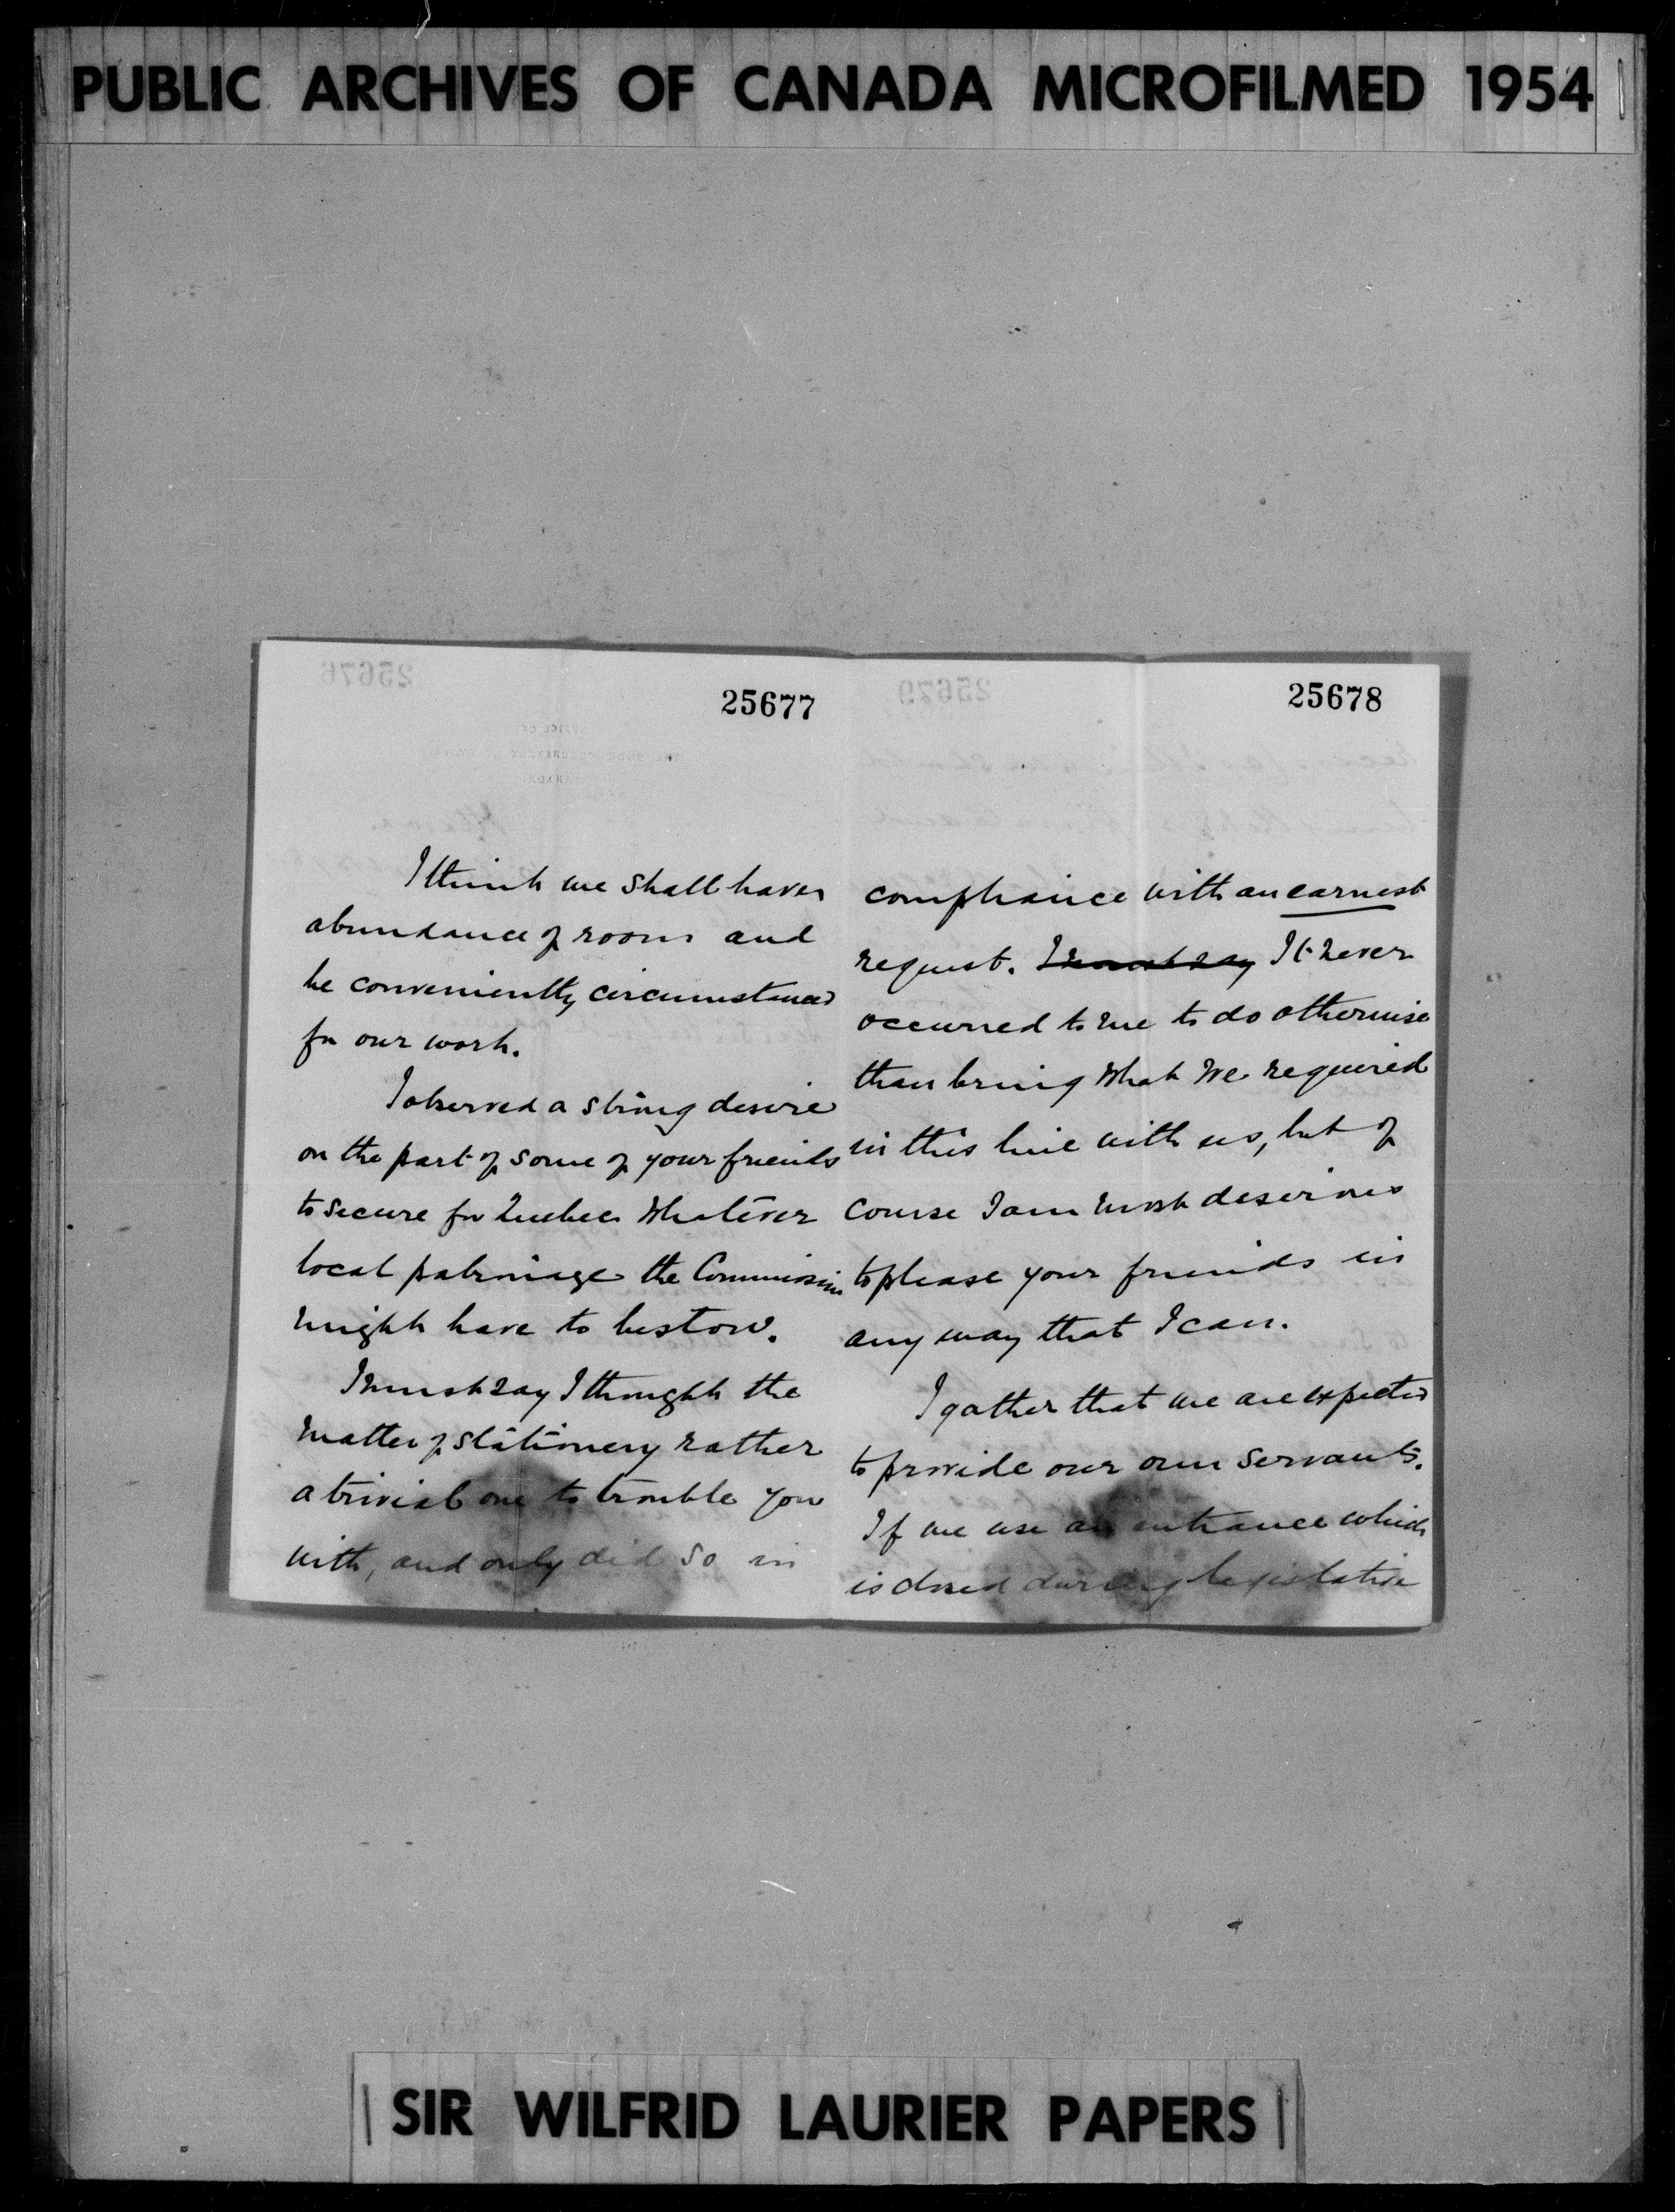 PUBLIC ARCHIVES OF CANADA MICROFILMED 1954
25677
I think we shall have
abundance of room and
be conveniently circumstanced
for our work.
I observed a strong desire
on the part of some of your friends
to secure for Quebec whatever
local patronage the Commission
might have to bestow.
I must say I thought the
matter of stationery rather
a trivial one to trouble you
with, and only did so in
25678
compliance with an earnest
request. I must say It never
occurred to me to do otherwise
than bring what we required
in this line with us, but of
course I am most desirous
to please your friends in
any way that I can.
I gather that we are expected
to provide our own servants.
If we use an entrance which
is closed during legislative
SIR WILFRID LAURIER PAPERS